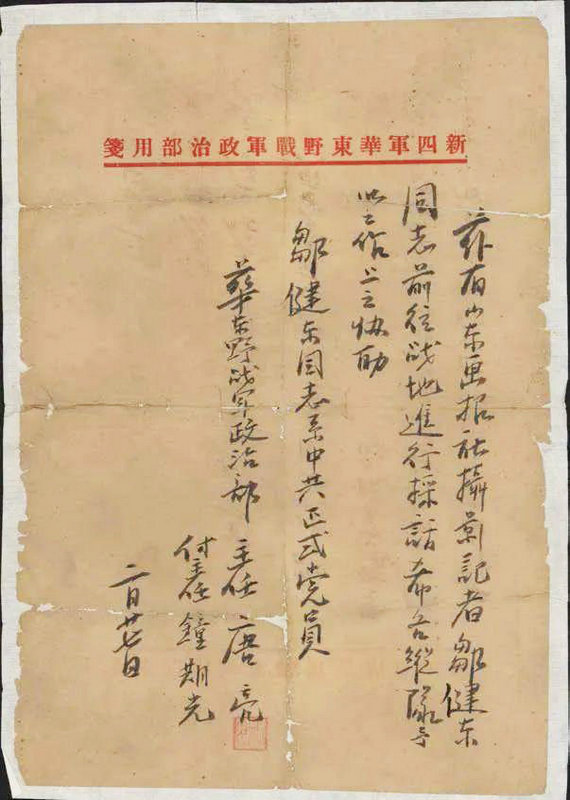 新四軍華東野戰軍政治部用箋
茲有山东画报社攝影記者鄒健东
同志前往战地進行採話希各縱隊予
以工作上之协助
鄒健东同志系中共正式党員
華东野战军政治部 主任 唐亮
付主任 鐘期光
二月廿七日